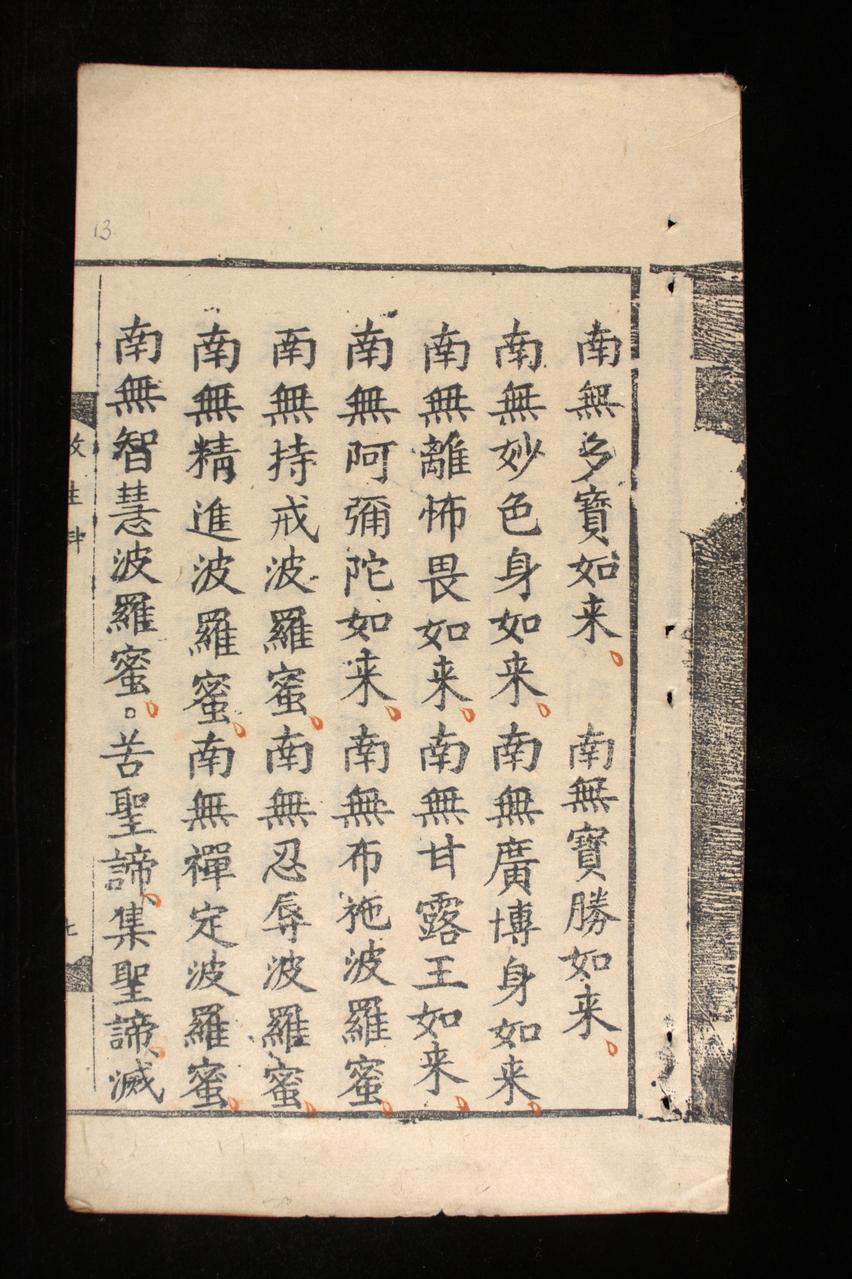 南無多寶如来 南無寶勝如来
南無妙色身如来南無廣博身如来
南無離怖畏如来南無甘露王如来
南無阿彌陀如来南無布祂波羅蜜
南無持戒波羅蜜南無忍辱波羅蜜
南無精進波羅蜜南無禪定波羅蜜
南無智慧波羅蜜。苦聖諦集聖諦滅
13